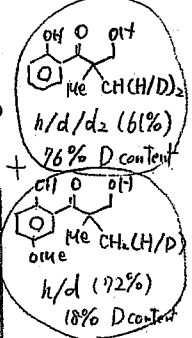 OH O OH
Me CH(H/D)₂
h/d/d₂ (61%)
76% D content
+
OH O OH
Me CH₂(H/D)
OMe
h/d (72%)
18% D content